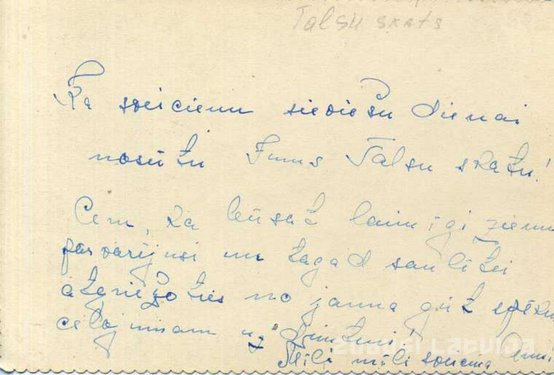 Talsu skats
Kā sveicienu sieviešu dienai
nosūtu Jums Talsu skatu!
Ceru, ka būsat laimīgi ziemu
pārvarējusi un tagad saulītei
atgriežoties no jauna gūt spēku
ceļojumam uz
Mīļi mīļi sveicina